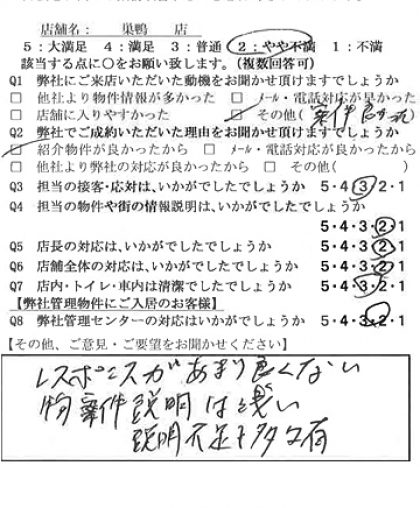 店舗名： 巣鴨 店
5：大満足 4：満足 3：普通 2：やや不満 1：不満
該当する点に○をお願い致します。（複数回答可）
Q1 弊社にご来店いただいた動機をお聞かせ頂けますでしょうか
□ 他社より物件情報が多かった □ メール・電話対応が早かった
□ 店舗に入りやすかった ☑ その他(案件良かった)
Q2 弊社でご成約いただいた理由をお聞かせ頂けますでしょうか
☑ 紹介物件が良かったから □ メール・電話対応が良かったから
□ 他社より弊社の対応が良かったから □ その他( )
Q3 担当の接客・応対は、いかがでしたでしょうか 5・4・3・2・1
Q4 担当の物件や街の情報説明は、いかがでしたでしょうか
5・4・3・2・1
Q5 店長の対応は、いかがでしたでしょうか 5・4・3・2・1
Q6 店舗全体の対応は、いかがでしたでしょうか 5・4・3・2・1
Q7 店内・トイレ・車内は清潔でしたでしょうか 5・4・3・2・1
【弊社管理物件にご入居のお客様】
Q8 弊社管理センターの対応はいかがでしょうか 5・4・3・2・1
【その他、ご意見・ご要望をお聞かせください】
レスポンスがあまり良くない
物案件説明は浅い
説明不足も多々有